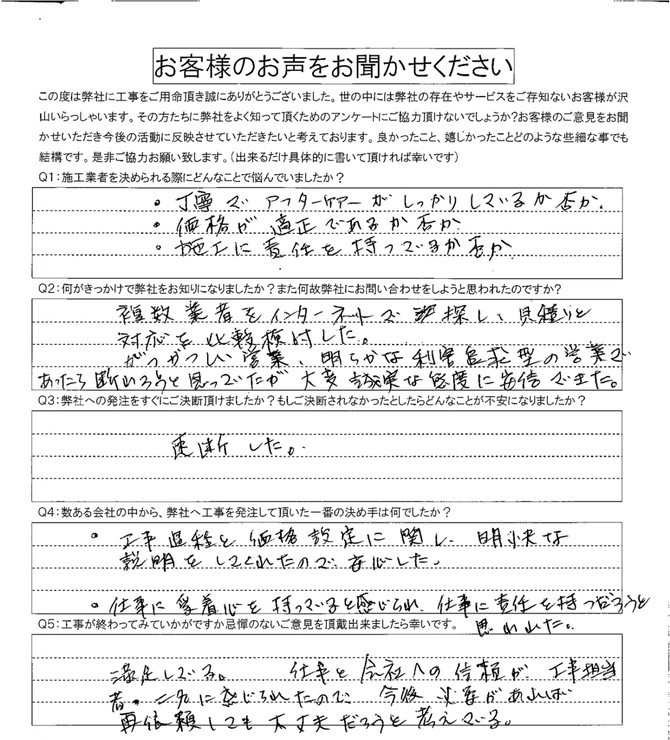 お客様のお声をお聞かせください
この度は弊社に工事をご用命頂き誠にありがとうございました。世の中には弊社の存在やサービスをご存知ないお客様が沢
山いらっしゃいます。その方たちに弊社をよく知って頂くためのアンケートにご協力頂けないでしょうか?お客様のご意見をお聞
かせいただき今後の活動に反映させていただきたいと考えております。良かったこと、嬉しかったことどのような些細な事でも
結構です。是非ご協力お願い致します。(出来るだけ具体的に書いて頂ければ幸いです)
Q1:施工業者を決められる際にどんなことで悩んでいましたか?
・丁寧でアフターケアーがしっかりしているか否か.
・価格が適正であるか否か
・施工に責任を持っているか否か
Q2:何がきっかけで弊社をお知りになりましたか?また何故弊社にお問い合わせをしようと思われたのですか?
複数業者をインターネットで探し、見積りと
対応を比較検討した。
がつがつしい営業、明らかな利害追求型の営業で
あったら断わろうと思っていたが大変誠実な態度に安信できた。
Q3:弊社への発注をすぐにご決断頂けましたか?もしご決断されなかったとしたらどんなことが不安になりましたか?
即断した。
Q4:数ある会社の中から、弊社へ工事を発注して頂いた一番の決め手は何でしたか?
・工事過程と価格設定に関し、明快な
説明をしてくれたので安心した。
・仕事に愛着心を持っていると感じられ、仕事に責任を持つだろうと
思われた。
Q5:工事が終わってみていかがですか忌憚のないご意見を頂戴出来ましたら幸いです。
満足している。 仕事と会社への信頼が、工事担当
者、二名に感じられたので、今後必要があれば
再依頼しても大丈夫だろうと考えている。